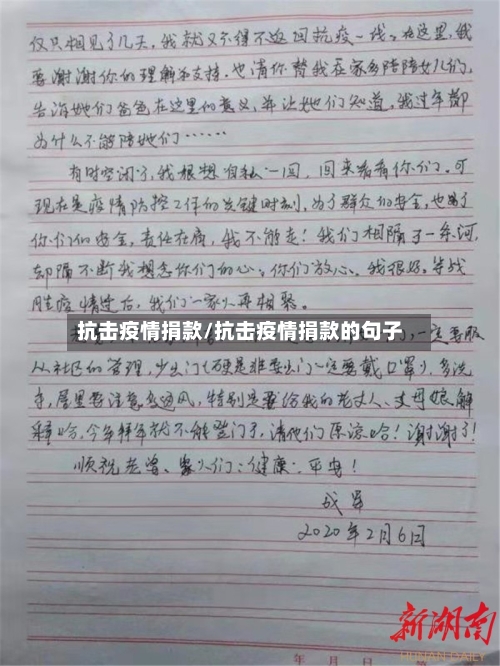 仅只相见了几天，我就又不得不返回抗疫一线。在这里，我
要谢谢你的理解和支持。也请你替我在家多陪陪女儿们，
告诉她们爸爸在这里的意义，并让她们知道，我过年都
为什么不能陪她们……
有时空闲了，我很想自私一回，回来看看你们。可
现在是疫情防控工作的关键时刻，为了群众的安全，也为了
你们的安全，责任在肩，我不能走！我们相隔了一条河，
却隔不断我想念你们的心。你们放心。我很好。等战
胜疫情过后，我们一家人再相聚。
抗击疫情捐款/抗击疫情捐款的句子
一定要服
从社区的管理，少出门（硬是非要出门一定要戴口罩），多洗
手，屋里要注意多通风，特别是要给我的老丈人、丈母娘解
释哈，今年拜年我不能登门了，请他们原谅哈！谢谢了！
顺祝老婆、家人们：健康、平安！
成军
2020年2月6日
新湖南
HUNAN DAILY
年 月 日